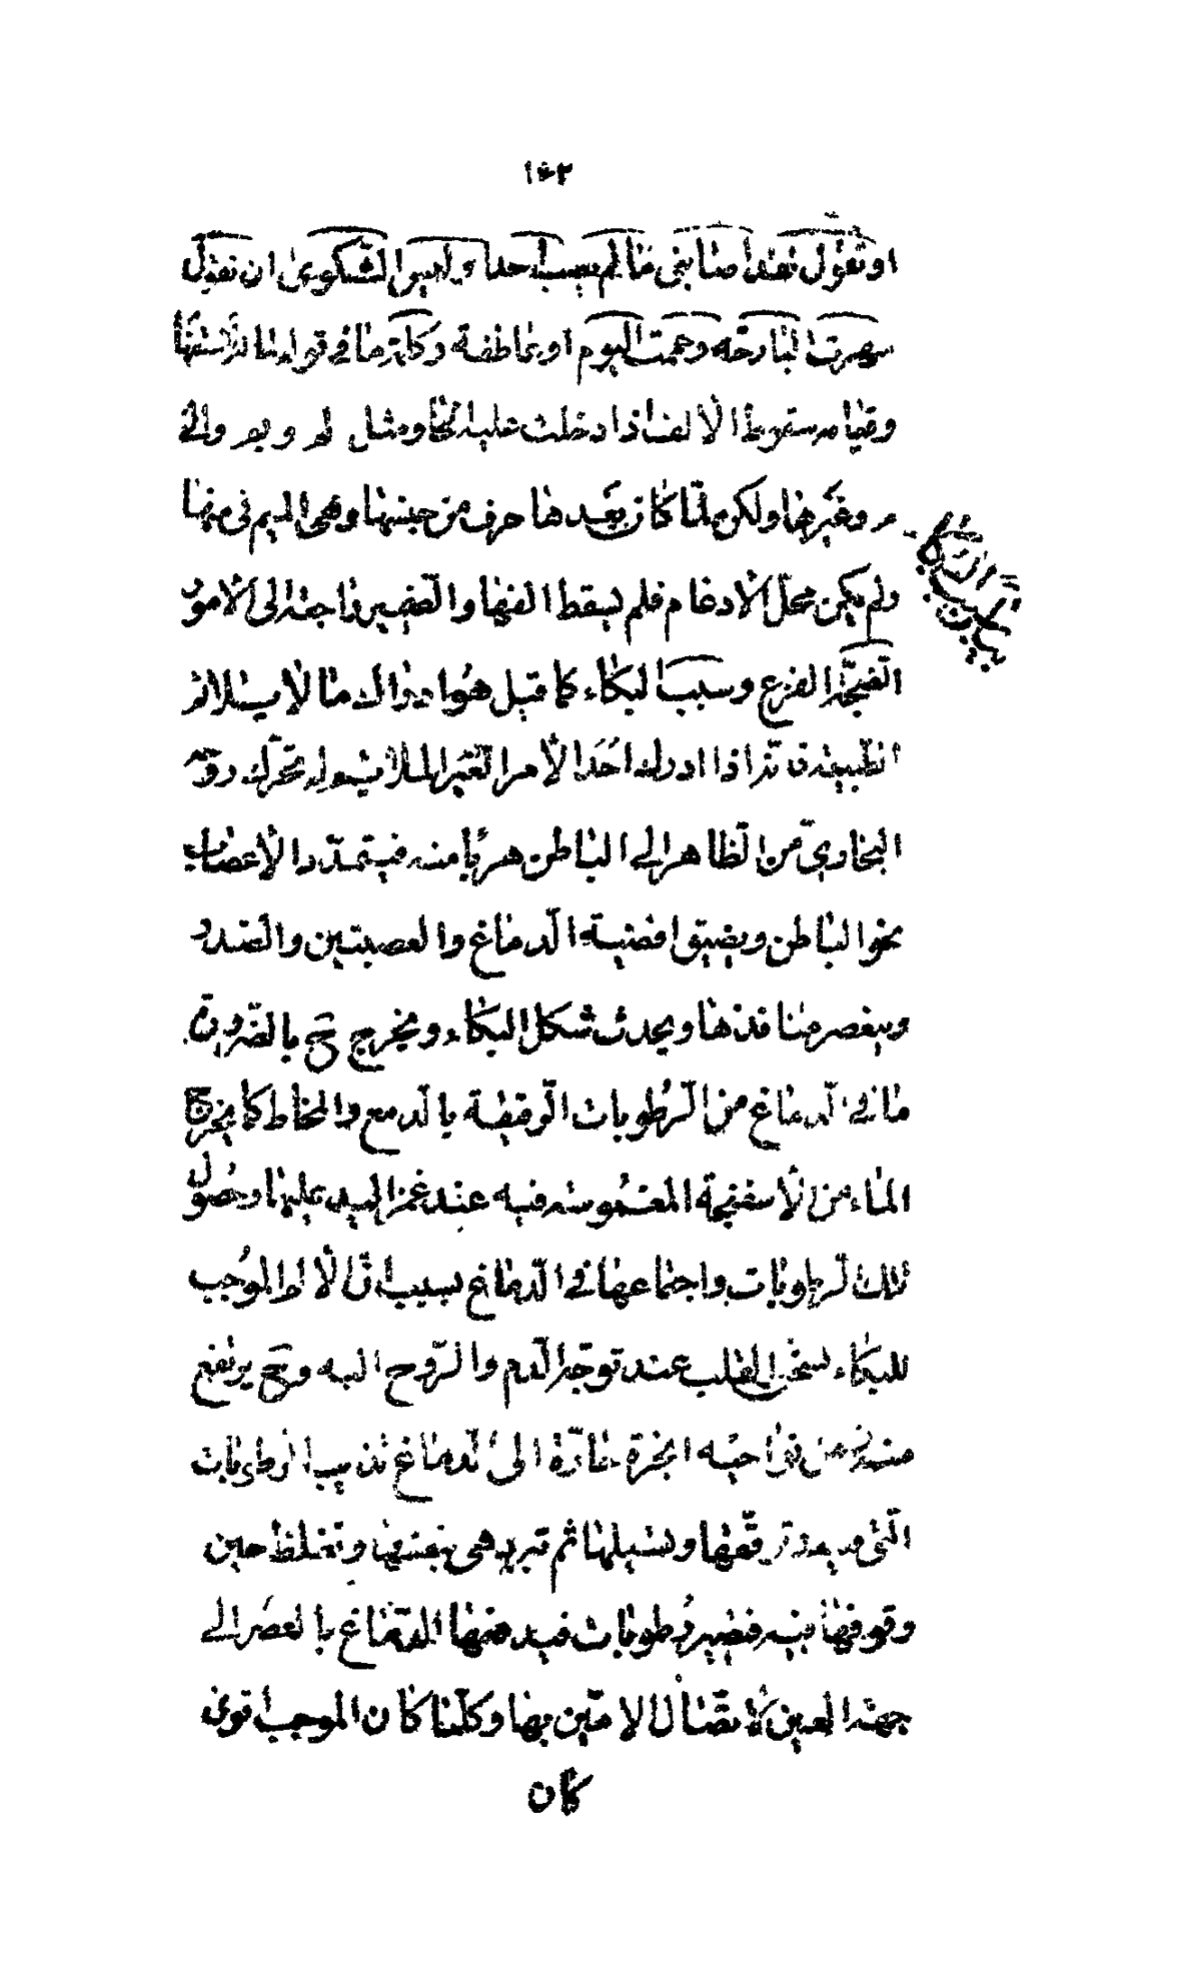 ١٤٢
او تقول لقد اصابني ما لم يصب احدا وليس الشكوى ان تقول
سهرت البارحة وحممت اليوم او عاطفة وكلمة ما في قوله للاستفهام
وقياسه سقوط الالف اذا دخلت عليه نحو مثل لم وبم والى
م وغيرها ولكن لما كان بعدها حرف من جنسها وهي الميم في منها
ولم يكن محل الادغام فلم يسقط الفها والضمير راجع الى الامور
المضحكة الفزع وسبب البكاء كما قيل هو ادراك ما لا يتلائم
الطبيعة اذا ادرك احد الامر الغير الملائم له تحرك روح
البخاري من الظاهر الى الباطن هربا منه فيتمدد الاعصاب
نحو الباطن ويضيق افضية الدماغ والعصبتين والصدر
وينعصر منافذها ويحدث شكل البكاء ويخرج ح بالضرورة
ما في الدماغ من الرطوبات الرقيقة بالدمع والمخاط كما يخرج
الماء من الاسفنجة المغموسة فيه عند غمز اليد عليها وحصول
تلك الرطوبات واجتماعها في الدماغ بسبب ان الالم الموجب
للبكاء يسخن القلب عند توجه الدم والروح اليه وح يرتفع
منه ومن نواحيه ابخرة حارة الى الدماغ تذيب الرطوبات
التي فيه ترققها وتسيلها ثم تبرد هي بنفسها وتغلظ حين
وقوفها فيه فتصير رطوبات فيدفعها الدماغ بالعصر الى
جهة العين لاتصال الامين بها وكلما كان الموجب اقوى
كان
سبب البكاء